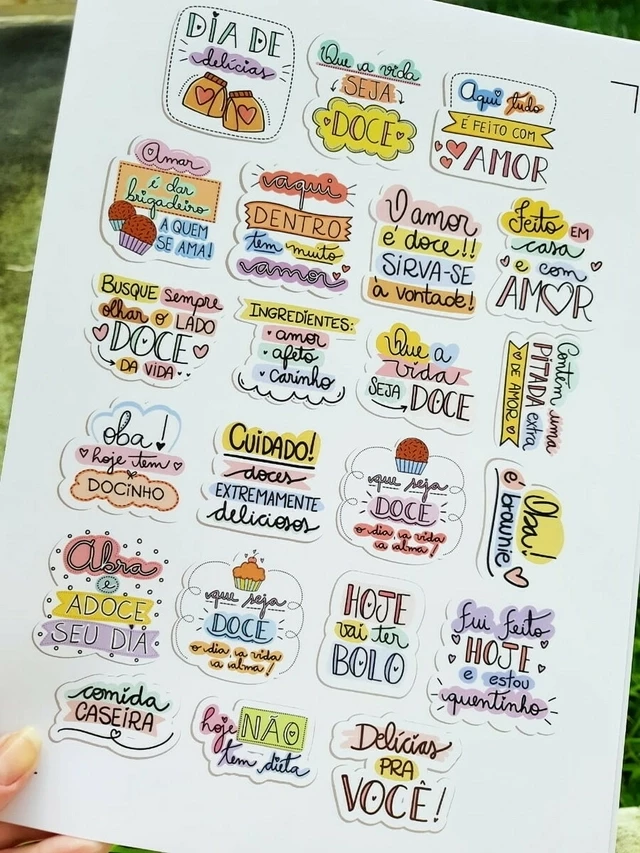 DIA DE
delícias
Que a vida
SEJA
DOCE
Aqui tudo
É FEITO COM
AMOR
Amar
é dar
brigadeiro
A QUEM
SE AMA!
aqui
DENTRO
tem muito
amor
O amor
é doce!!
SIRVA-SE
à vontade!
Feito EM
casa
e com
AMOR
BUSQUE sempre
olhar o LADO
DOCE
DA VIDA
INGREDIENTES:
amor
afeto
carinho
Que a
vida
SEJA
DOCE
Contém uma
PITADA extra
DE AMOR
oba!
hoje tem
DOCINHO
CUIDADO!
doces
EXTREMAMENTE
deliciosos
que seja
DOCE
o dia, a vida
a alma!
Oba!
é brownie
Abra
e
ADOCE
SEU DIA
que seja
DOCE
o dia, a vida
a alma!
HOJE
vai ter
BOLO
Fui feito
HOJE
e estou
quentinho
comida
CASEIRA
hoje NÃO
tem dieta
Delícias
PRA
VOCÊ!